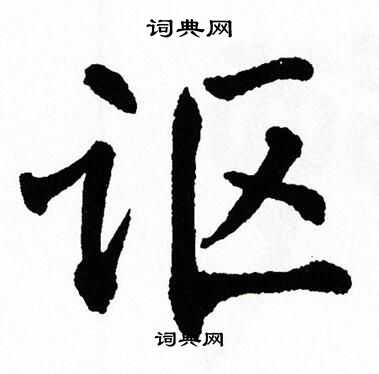 词典网
讴
词典网